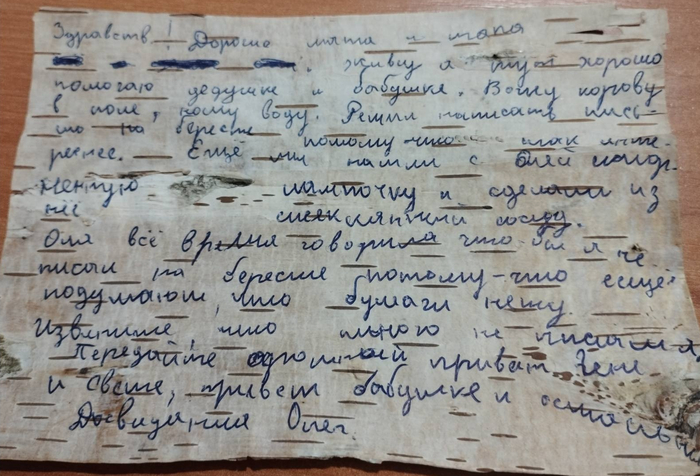 Здравств! Дорогие мама и папа
живу я тут хорошо
помогаю дедушке и бабушке. Вожу корову
в поле, ношу воду. Решил написать пись-
мо на бересте потому-что так инте-
реснее. Ещё мы нашли с Олей
лампочку и сделали из
неё стеклянный сосуд.
Оля всё время говорила что бы я не
писал на бересте потому-что ещё
подумают, что бумаги нету.
Извените, что много не писал,
Передайте огромный привет Гене
и Свете, привет бабушке и остальн
Досвидания Олег.